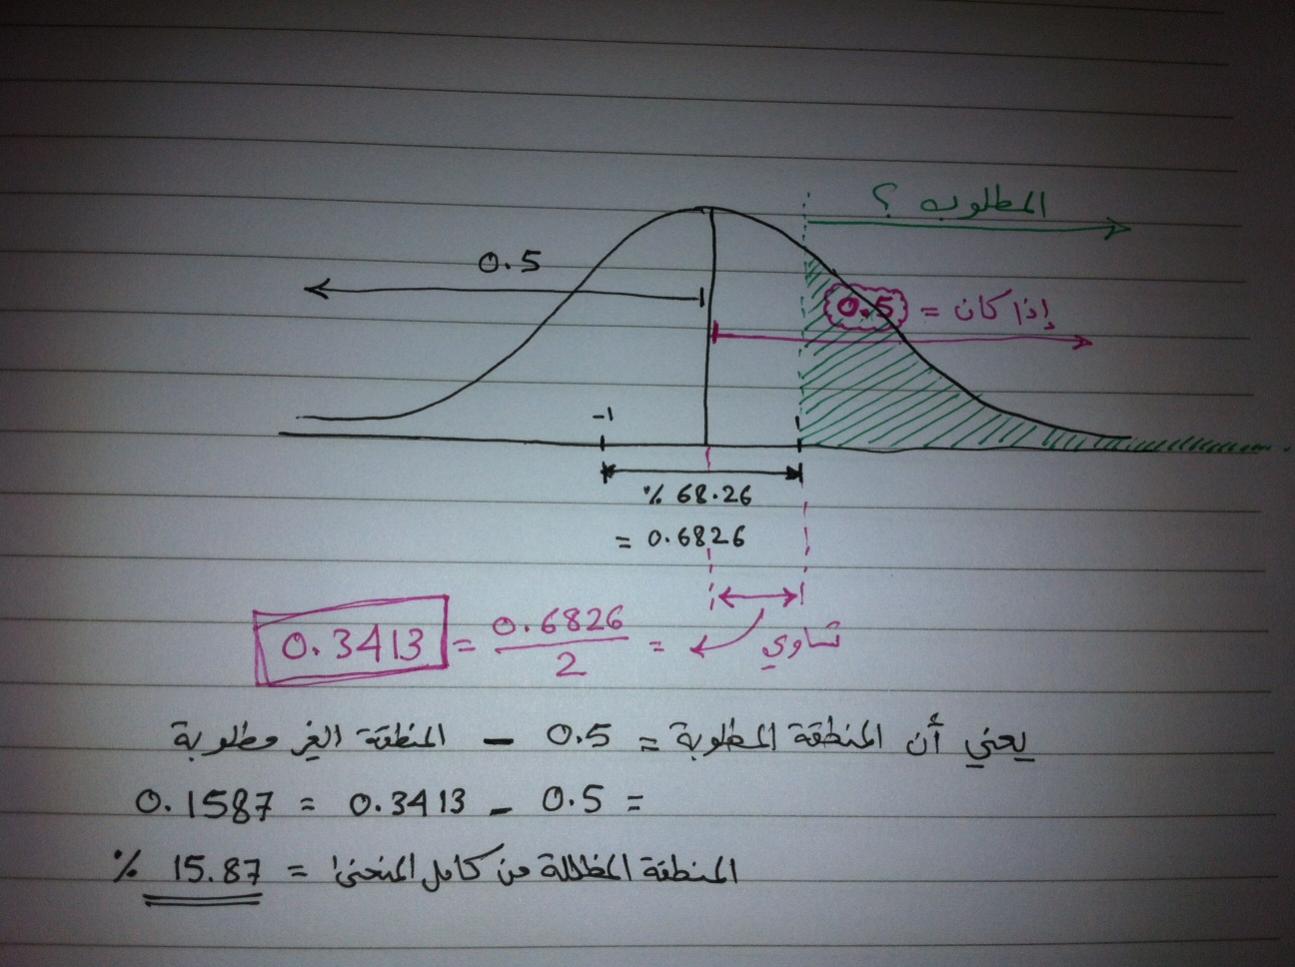 المطلوب ؟
0.5
إذا كان = 0.5
-1
% 68.26
= 0.6826
تساوي = 0.6826 / 2 = 0.3413
يعني أن المنطقة المطلوبة = 0.5 - المنطقة الغير مطلوبة
= 0.5 - 0.3413 = 0.1587
المنطقة المظللة من كامل المنحنى = 15.87 %